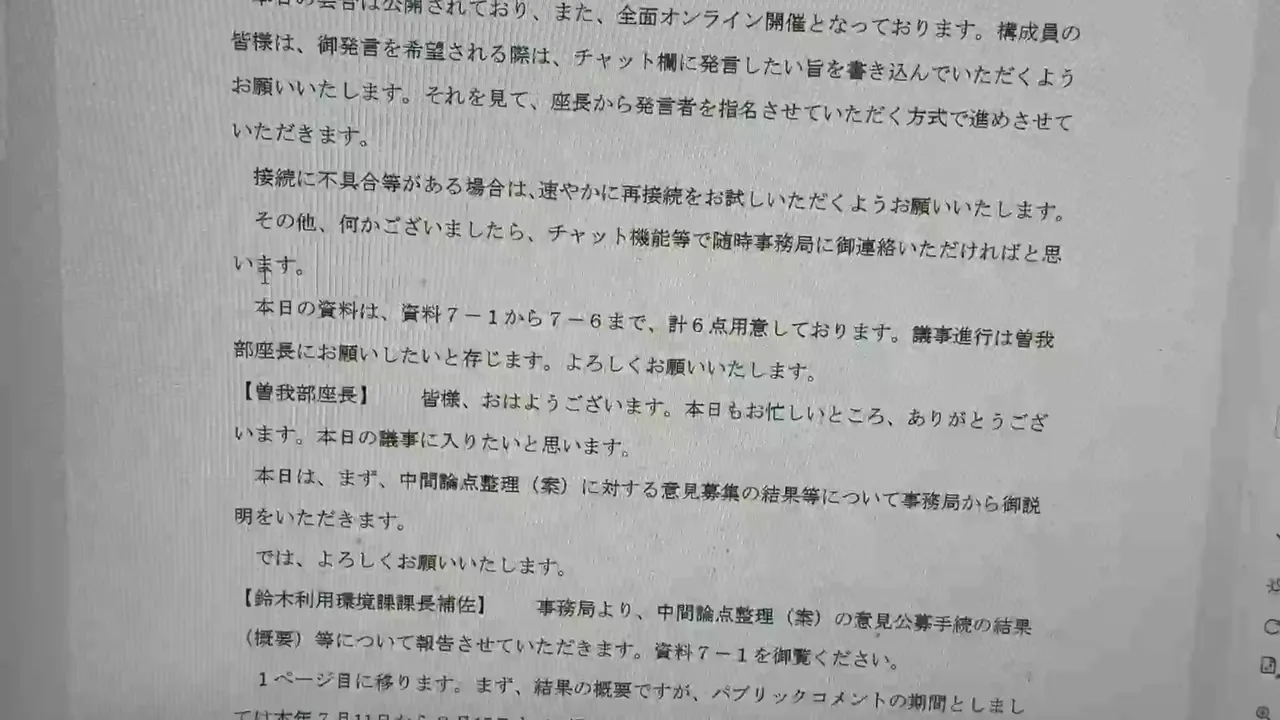 本日の会合は公開されており、また、全面オンライン開催となっております。構成員の
皆様は、御発言を希望される際は、チャット欄に発言したい旨を書き込んでいただくよう
お願いいたします。それを見て、座長から発言者を指名させていただく方式で進めさせて
いただきます。
接続に不具合等がある場合は、速やかに再接続をお試しいただくようお願いいたします。
その他、何かございましたら、チャット機能等で随時事務局に御連絡いただければと思
います。
本日の資料は、資料７－１から７－６まで、計６点用意しております。議事進行は曽我
部座長にお願いしたいと存じます。よろしくお願いいたします。
【曽我部座長】　　皆様、おはようございます。本日もお忙しいところ、ありがとうござ
います。本日の議事に入りたいと思います。
本日は、まず、中間論点整理（案）に対する意見募集の結果等について事務局から御説
明をいただきます。
では、よろしくお願いいたします。
【鈴木利用環境課課長補佐】　　事務局より、中間論点整理（案）の意見公募手続の結果
（概要）等について報告させていただきます。資料７－１を御覧ください。
１ページ目に移ります。まず、結果の概要ですが、パブリックコメントの期間としまし
ては本年７月11日から